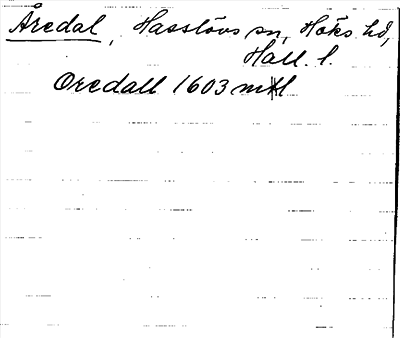 Åredal, Hasslövs sn, Höks hd,
Hall. l.
Oredall 1603 mtl